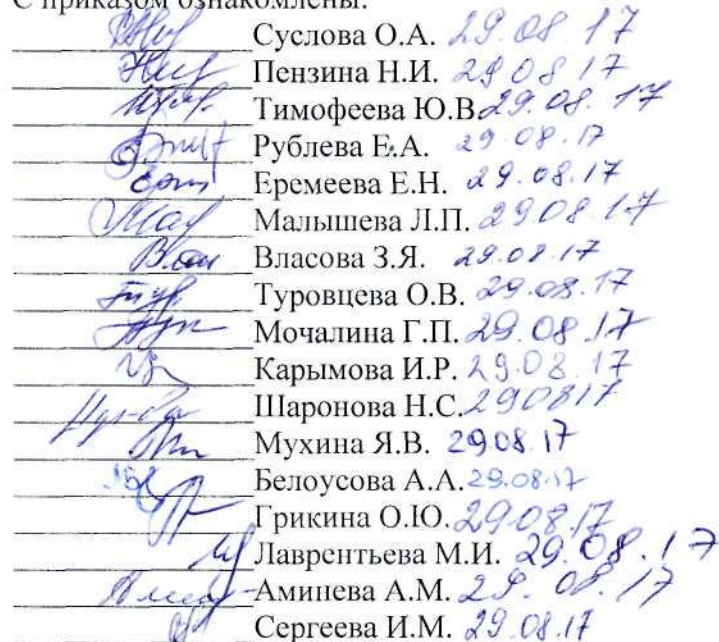 С приказом ознакомлены:
Суслова О.А. 29.08.17
Пензина Н.И. 29 08 17
Тимофеева Ю.В. 29.08.17
Рублева Е.А. 29.08.17
Еремеева Е.Н. 29.08.17
Малышева Л.П. 29 08.17
Власова З.Я. 29.08.17
Туровцева О.В. 29.08.17
Мочалина Г.П. 29.08.17
Карымова И.Р. 29.08.17
Шаронова Н.С. 290817
Мухина Я.В. 2908.17
Белоусова А.А. 29.08.17
Грикина О.Ю. 29.08.17
Лаврентьева М.И. 29.08.17
Аминева А.М. 29.08.17
Сергеева И.М. 29.08.17